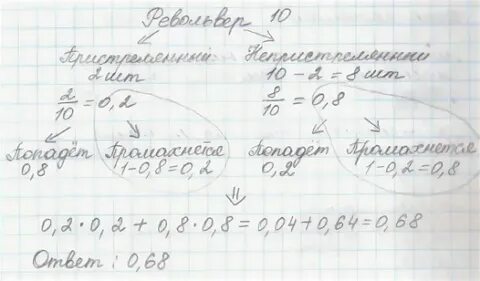 Револьвер 10
Пристрелянный Непристрелянный
2 шт 10 - 2 = 8 шт
2/10 = 0,2 8/10 = 0,8
Попадёт Промахнётся Попадёт Промахнется
0,8 1-0,8=0,2 0,2 1-0,2=0,8
0,2·0,2 + 0,8·0,8 = 0,04+0,64=0,68
Ответ : 0,68